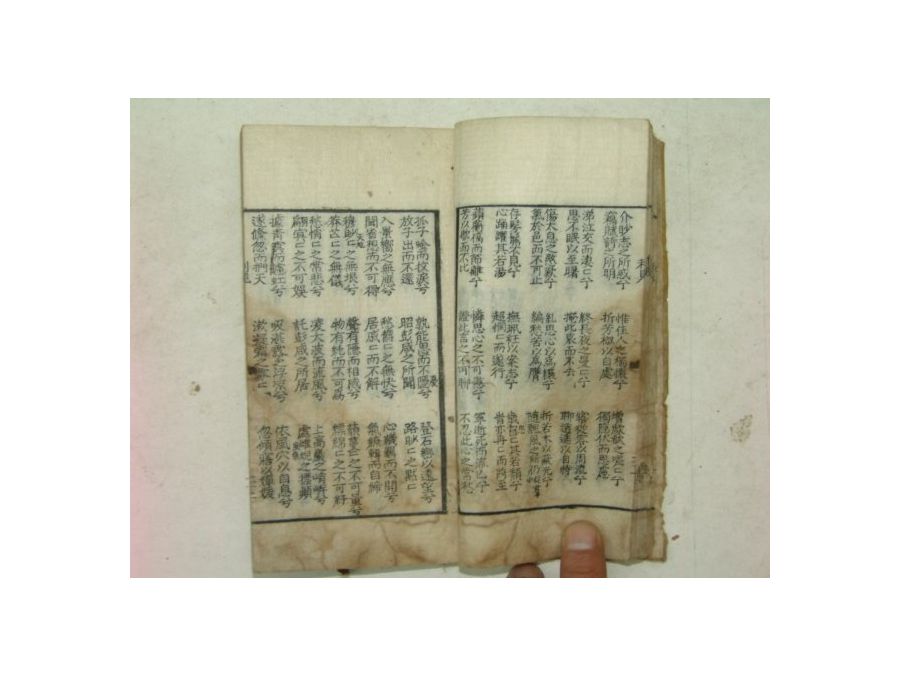 介眇志之所惑兮
竊賦詩之所明
惟佳人之獨懷兮
折芳椒以自處
增歔欷之嗟〻兮
獨隱伏而思慮
涕泣交而凄〻兮
思不眠以至曙
終長夜之曼〻兮
掩此哀而不去
寤從容以周流兮
聊逍遙以自恃
傷太息之愍歎兮
氣於邑而不可止
糺思心以爲纕兮
編愁苦以爲膺
折若木以蔽光兮
隨飄風之所仍
存髣髴而不見兮
心踊躍其若湯
撫珮衽以案志兮
超惘〻而遂行
歲曶〻其若頹兮
旹亦冉〻而將至
薠蘅槁而節離兮
芳以歇而不比
憐思心之不可懲兮
證此言之不可聊
寧逝死而流亡兮
不忍此心之常愁
孤子唫而抆淚兮
放子出而不還
孰能思而不隱兮
昭彭咸之所聞
登石巒以遠望兮
路眇〻之默〻
入景響之無應兮
聞省想而不可得
愁鬱〻之無快兮
居戚〻而不解
心鞿羈而不開兮
氣繚轉而自締
穆眇〻之無垠兮
莽芒〻之無儀
聲有隱而相感兮
物有純而不可爲
藐蔓〻之不可量兮
縹綿〻之不可紆
愁悄〻之常悲兮
翩冥〻之不可娛
凌大波而流風兮
託彭咸之所居
上高巖之峭岸兮
處雌蜺之標顛
據青冥而攄虹兮
遂倏忽而捫天
吸湛露之浮凉兮
漱凝霜之雰〻
依風穴以自息兮
忽傾寤以嬋媛